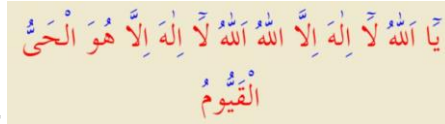 يَٓا اَللّٰهُ لَٓا اِلٰهَ اِلَّا اللّٰهُ اَللّٰهُ لَٓا اِلٰهَ اِلَّا هُوَ الْحَىُّ
الْقَيُّومُ